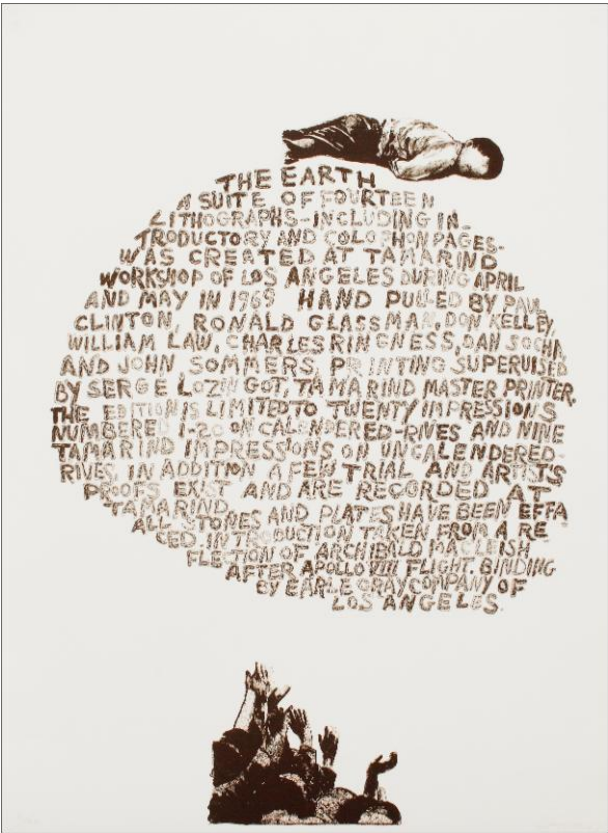 THE EARTH
A SUITE OF FOURTEEN
LITHOGRAPHS-INCLUDING IN-
TRODUCTORY AND COLOPHON PAGES-
WAS CREATED AT TAMARIND
WORKSHOP OF LOS ANGELES DURING APRIL
AND MAY IN 1969 HAND PULLED BY PAUL
CLINTON, RONALD GLASSMAN, DON KELLEY,
WILLIAM LAW, CHARLES RINGNESS, DAN SOCHA,
AND JOHN SOMMERS, PRINTING SUPERVISED
BY SERGE LOZINGOT, TAMARIND MASTER PRINTER.
THE EDITION IS LIMITED TO TWENTY IMPRESSIONS
NUMBERED 1-20 ON CALENDERED-RIVES AND NINE
TAMARIND IMPRESSIONS ON UNCALENDERED-
RIVES, IN ADDITION A FEW TRIAL AND ARTISTS
PROOFS EXIST AND ARE RECORDED AT
TAMARIND
ALL STONES AND PLATES HAVE BEEN EFFA
CED. INTRODUCTION TAKEN FROM A RE
FLECTION OF ARCHIBALD MACLEISH
AFTER APOLLO VIII FLIGHT. BINDING
BY EARLE GRAY COMPANY OF
LOS ANGELES.